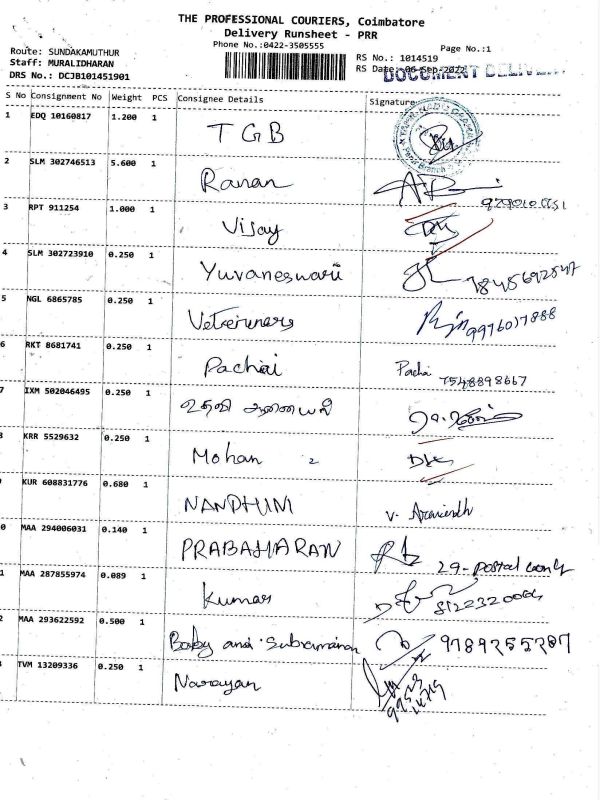 THE PROFESSIONAL COURIERS, Coimbatore
Delivery Runsheet - PRR
Phone No.:0422-3505555
Page No.:1
Route: SUNDAKAMUTHUR
Staff: MURALIDHARAN
DRS No.: DCJB101451901
RS No.: 1014519
RS Date: 06-Sep-2022
DOCUMENT DELIVER
S No Consignment No Weight PCS Consignee Details Signature
1 EDQ 10160817 1.200 1 TGB
2 SLM 302746513 5.600 1 Ranan
3 RPT 911254 1.000 1 Vijay
4 SLM 302723910 0.250 1 Yuvaneswari
5 NGL 6865785 0.250 1 9976017888
6 RKT 8681741 0.250 1 Pachai Pacha 7548898667
7 IXM 502046495 0.250 1 உதவி ஆணையர்
8 KRR 5529632 0.250 1 Mohan 2
KUR 608831776 0.680 1 NANDHINI V. Aravindh
0 MAA 294006031 0.140 1 PRABAHARAN 29-postal colony
1 MAA 287855974 0.089 1 Kumar
2 MAA 293622592 0.500 1 Baby Subramanian 9789255207
TVM 13209336 0.250 1 Narayan